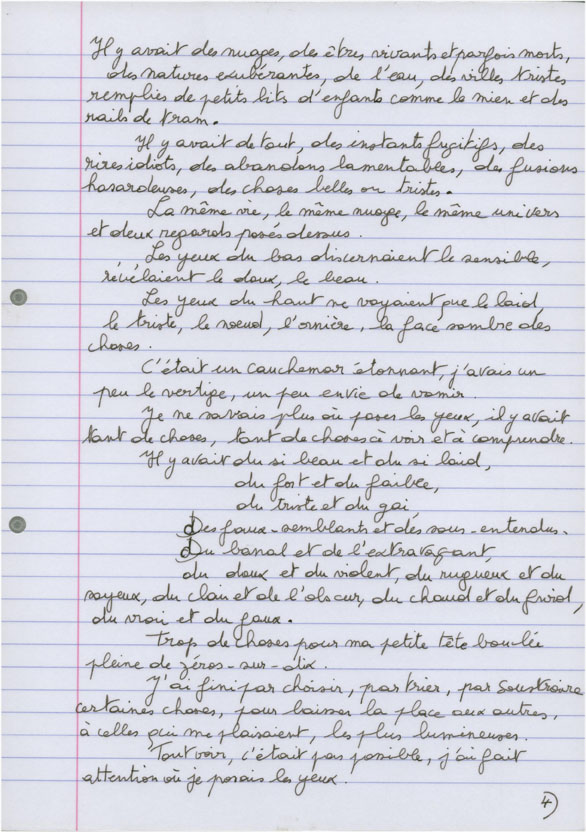 Il y avait des nuages, des êtres vivants et parfois morts,
des natures exubérantes, de l'eau, des villes tristes
remplies de petits lits d'enfants comme le mien et des
rails de tram.
Il y avait de tout, des instants fugitifs, des
rires idiots, des abandons lamentables, des fusions
hasardeuses, des choses belles ou tristes.
La même vie, le même nuage, le même univers
et deux regards posés dessus.
Les yeux du bas discernaient le sensible,
révélaient le doux, le beau.
Les yeux du haut ne voyaient que le laid,
le triste, le noeud, l'ornière, la face sombre des
choses.
C'était un cauchemar étonnant, j'avais un
peu le vertige, un peu envie de vomir.
Je ne savais plus où poser les yeux, il y avait
tant de choses, tant de choses à voir et à comprendre.
Il y avait du si beau et du si laid,
du fort et du faible,
du triste et du gai,
Des faux-semblants et des sous-entendus.
Du banal et de l'extravagant,
du doux et du violent, du rugueux et du
soyeux, du clair et de l'obscur, du chaud et du froid,
du vrai et du faux.
Trop de choses pour ma petite tête bouclée
pleine de zéros-sur-dix.
J'ai fini par choisir, par trier, par soustraire
certaines choses, pour laisser la place aux autres,
à celles qui me plaisaient, les plus lumineuses.
Tout voir, c'était pas possible, j'ai fait
attention où je posais les yeux.
4)